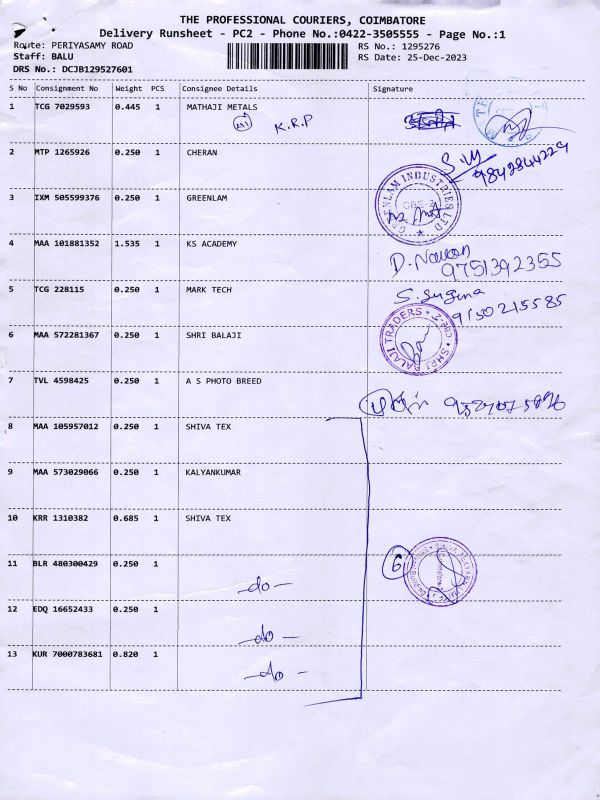 THE PROFESSIONAL COURIERS, COIMBATORE
Delivery Runsheet - PC2 - Phone No.:0422-3505555 - Page No.:1
Route: PERIYASAMY ROAD
RS No.: 1295276
Staff: BALU
RS Date: 25-Dec-2023
DRS No.: DCJB129527601
S No Consignment No Weight PCS Consignee Details Signature
1 TCG 7029593 0.445 1 MATHAJI METALS
K.R.P
2 MTP 1265926 0.250 1 CHERAN
9842844229
3 IXM 505599376 0.250 1 GREENLAM
GREENLAM INDUSTRIES LTD
CBE-2
4 MAA 101881352 1.535 1 KS ACADEMY
9751392355
5 TCG 228115 0.250 1 MARK TECH
S. Suguna
9150215585
6 MAA 572281367 0.250 1 SHRI BALAJI
SHRI BALAJI TRADERS CBE-2
7 TVL 4598425 0.250 1 A S PHOTO BREED
8 MAA 105957012 0.250 1 SHIVA TEX
9 MAA 573029066 0.250 1 KALYANKUMAR
10 KRR 1310382 0.685 1 SHIVA TEX
6
11 BLR 480300429 0.250 1
-do-
12 EDQ 16652433 0.250 1
-do-
13 KUR 7000783681 0.820 1
-do-